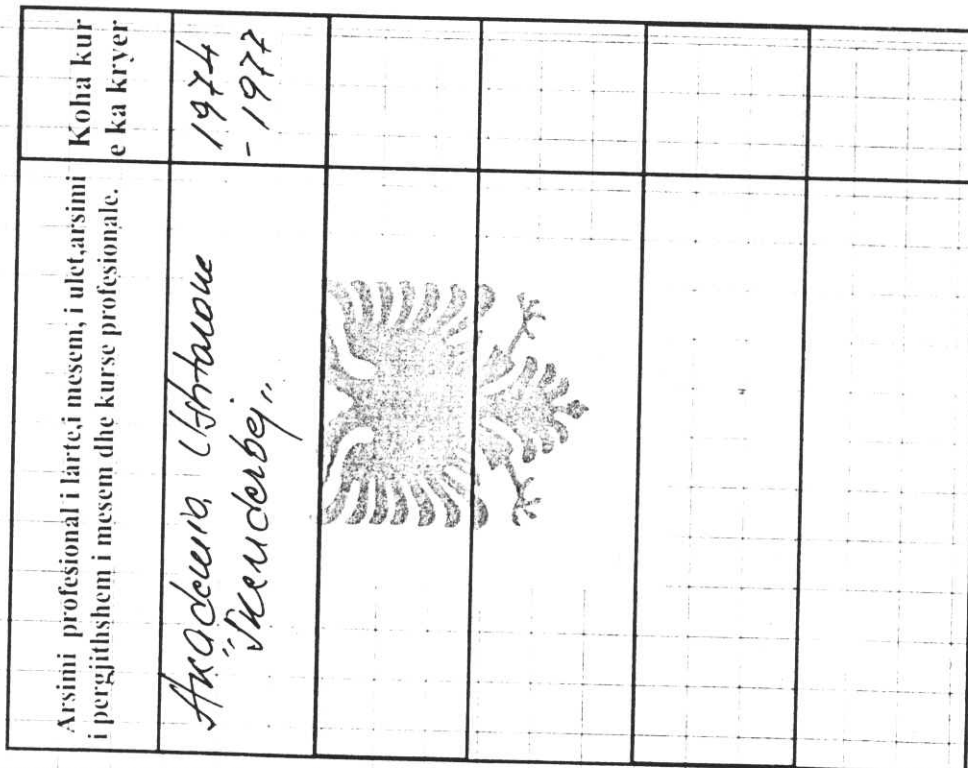 Arsimi profesional i larte,i mesem, i ulet,arsimi
i pergjithshem i mesem dhe kurse profesionale.
Koha kur
e ka kryer
Akademia Ushtarake
"Skenderbej"
1974
- 1977